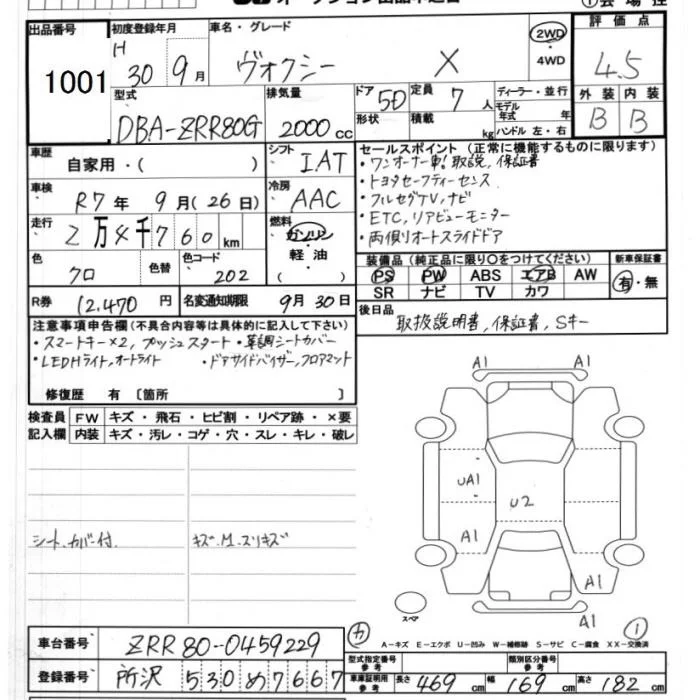 オークション出品申込書
出品番号 初度登録年月 車名・グレード 2WD・4WD 評価点
1001 H30 9月 ヴォクシー X 4.5
型式 排気量 ドア 5D 定員 7人 ディーラー・並行 外装 内装
DBA-ZRR80G 2000cc 形状 積載 kg モデル年式 年 B B
ハンドル 左・右
車歴 自家用・( ) シフト IAT セールスポイント (正常に機能するものに限ります)
・ワンオーナー車!取説、保証書
車検 R7年 9月(26日) 冷房 AAC ・トヨタセーフティーセンス
・フルセグTV、ナビ
走行 2万4千760km 燃料 ガソリン・軽油・( ) ・ETC、リアビューモニター
・両側オートスライドドア
色 クロ 色替 色コード 202 装備品 (純正品に限り〇をつけてください) 新車保証書
PS PW ABS エアB AW 有・無
SR ナビ TV カワ
R券 12,470円 名変通知期限 9月30日 後日品
取扱説明書、保証書、Sキー
注意事項申告欄(不具合内容等は具体的に記入して下さい)
・スマートキー×2, プッシュスタート ・革調シートカバー
・LEDHライト,オートライト ・ドアサイドバイザー,フロアマット
修復歴 有 〔箇所 〕
検査員記入欄 FW キズ・飛石・ヒビ割・リペア跡・×要
内装 キズ・汚レ・コゲ・穴・スレ・キレ・破レ
A1 A1
UA1
U2
A1
A1
A1
シートカバー付. キズ・M・スリキズ
スペア
A-キズ E-エクボ U-凹み W-補修跡 S-サビ C-腐食 XX-交換済
車台番号 ZRR80-0459229
型式指定番号 参考 類別区分番号 参考
登録番号 所沢 530 め 7667 車庫証明用参考 長さ 469cm 幅 169cm 高さ 182cm